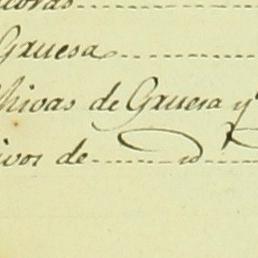 Gruesa
hivas de Gruesa y
ivos de